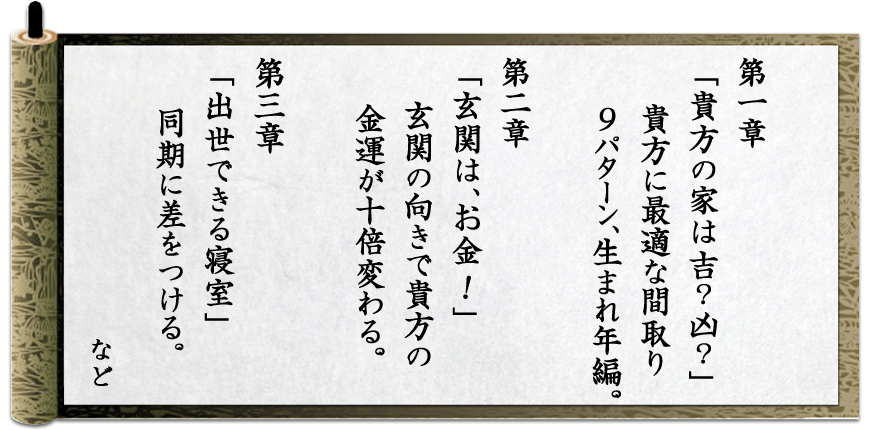 第一章
「貴方の家は吉？凶？」
貴方に最適な間取り
９パターン、生まれ年編。
第二章
「玄関は、お金！」
玄関の向きで貴方の
金運が十倍変わる。
第三章
「出世できる寝室」
同期に差をつける。
など